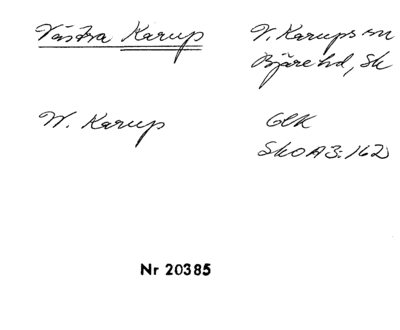 Västra Karup
V. Karups sn
Bjäre hd, Sk
W. Karup
GEK
SkO A3:162
Nr 20385